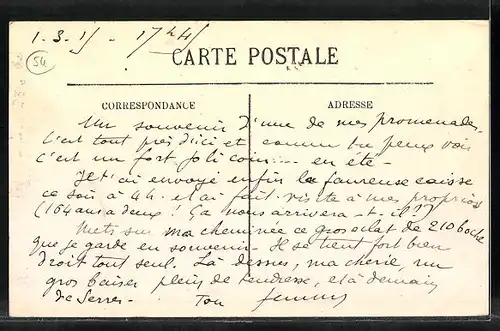 1.3.15 - 1744
54
CARTE POSTALE
CORRESPONDANCE
ADRESSE
Un souvenir d'une de mes promenades.
C'est tout près d'ici et comme tu peux voir
c'est un fort joli coin..... en été -
Je t'ai envoyé enfin la fameuse caisse
ce soir à 4h. et ai fait visite à mes proprios
(164 ans à deux ! Ça nous arrivera-t-il ??
Mets sur ma cheminée ce gros éclat de 210 boche
que je garde en souvenir. Il se tient fort bien
droit tout seul. Là dessus, ma chérie, un
gros baiser plein de tendresse, et à demain
de Serres - Ton